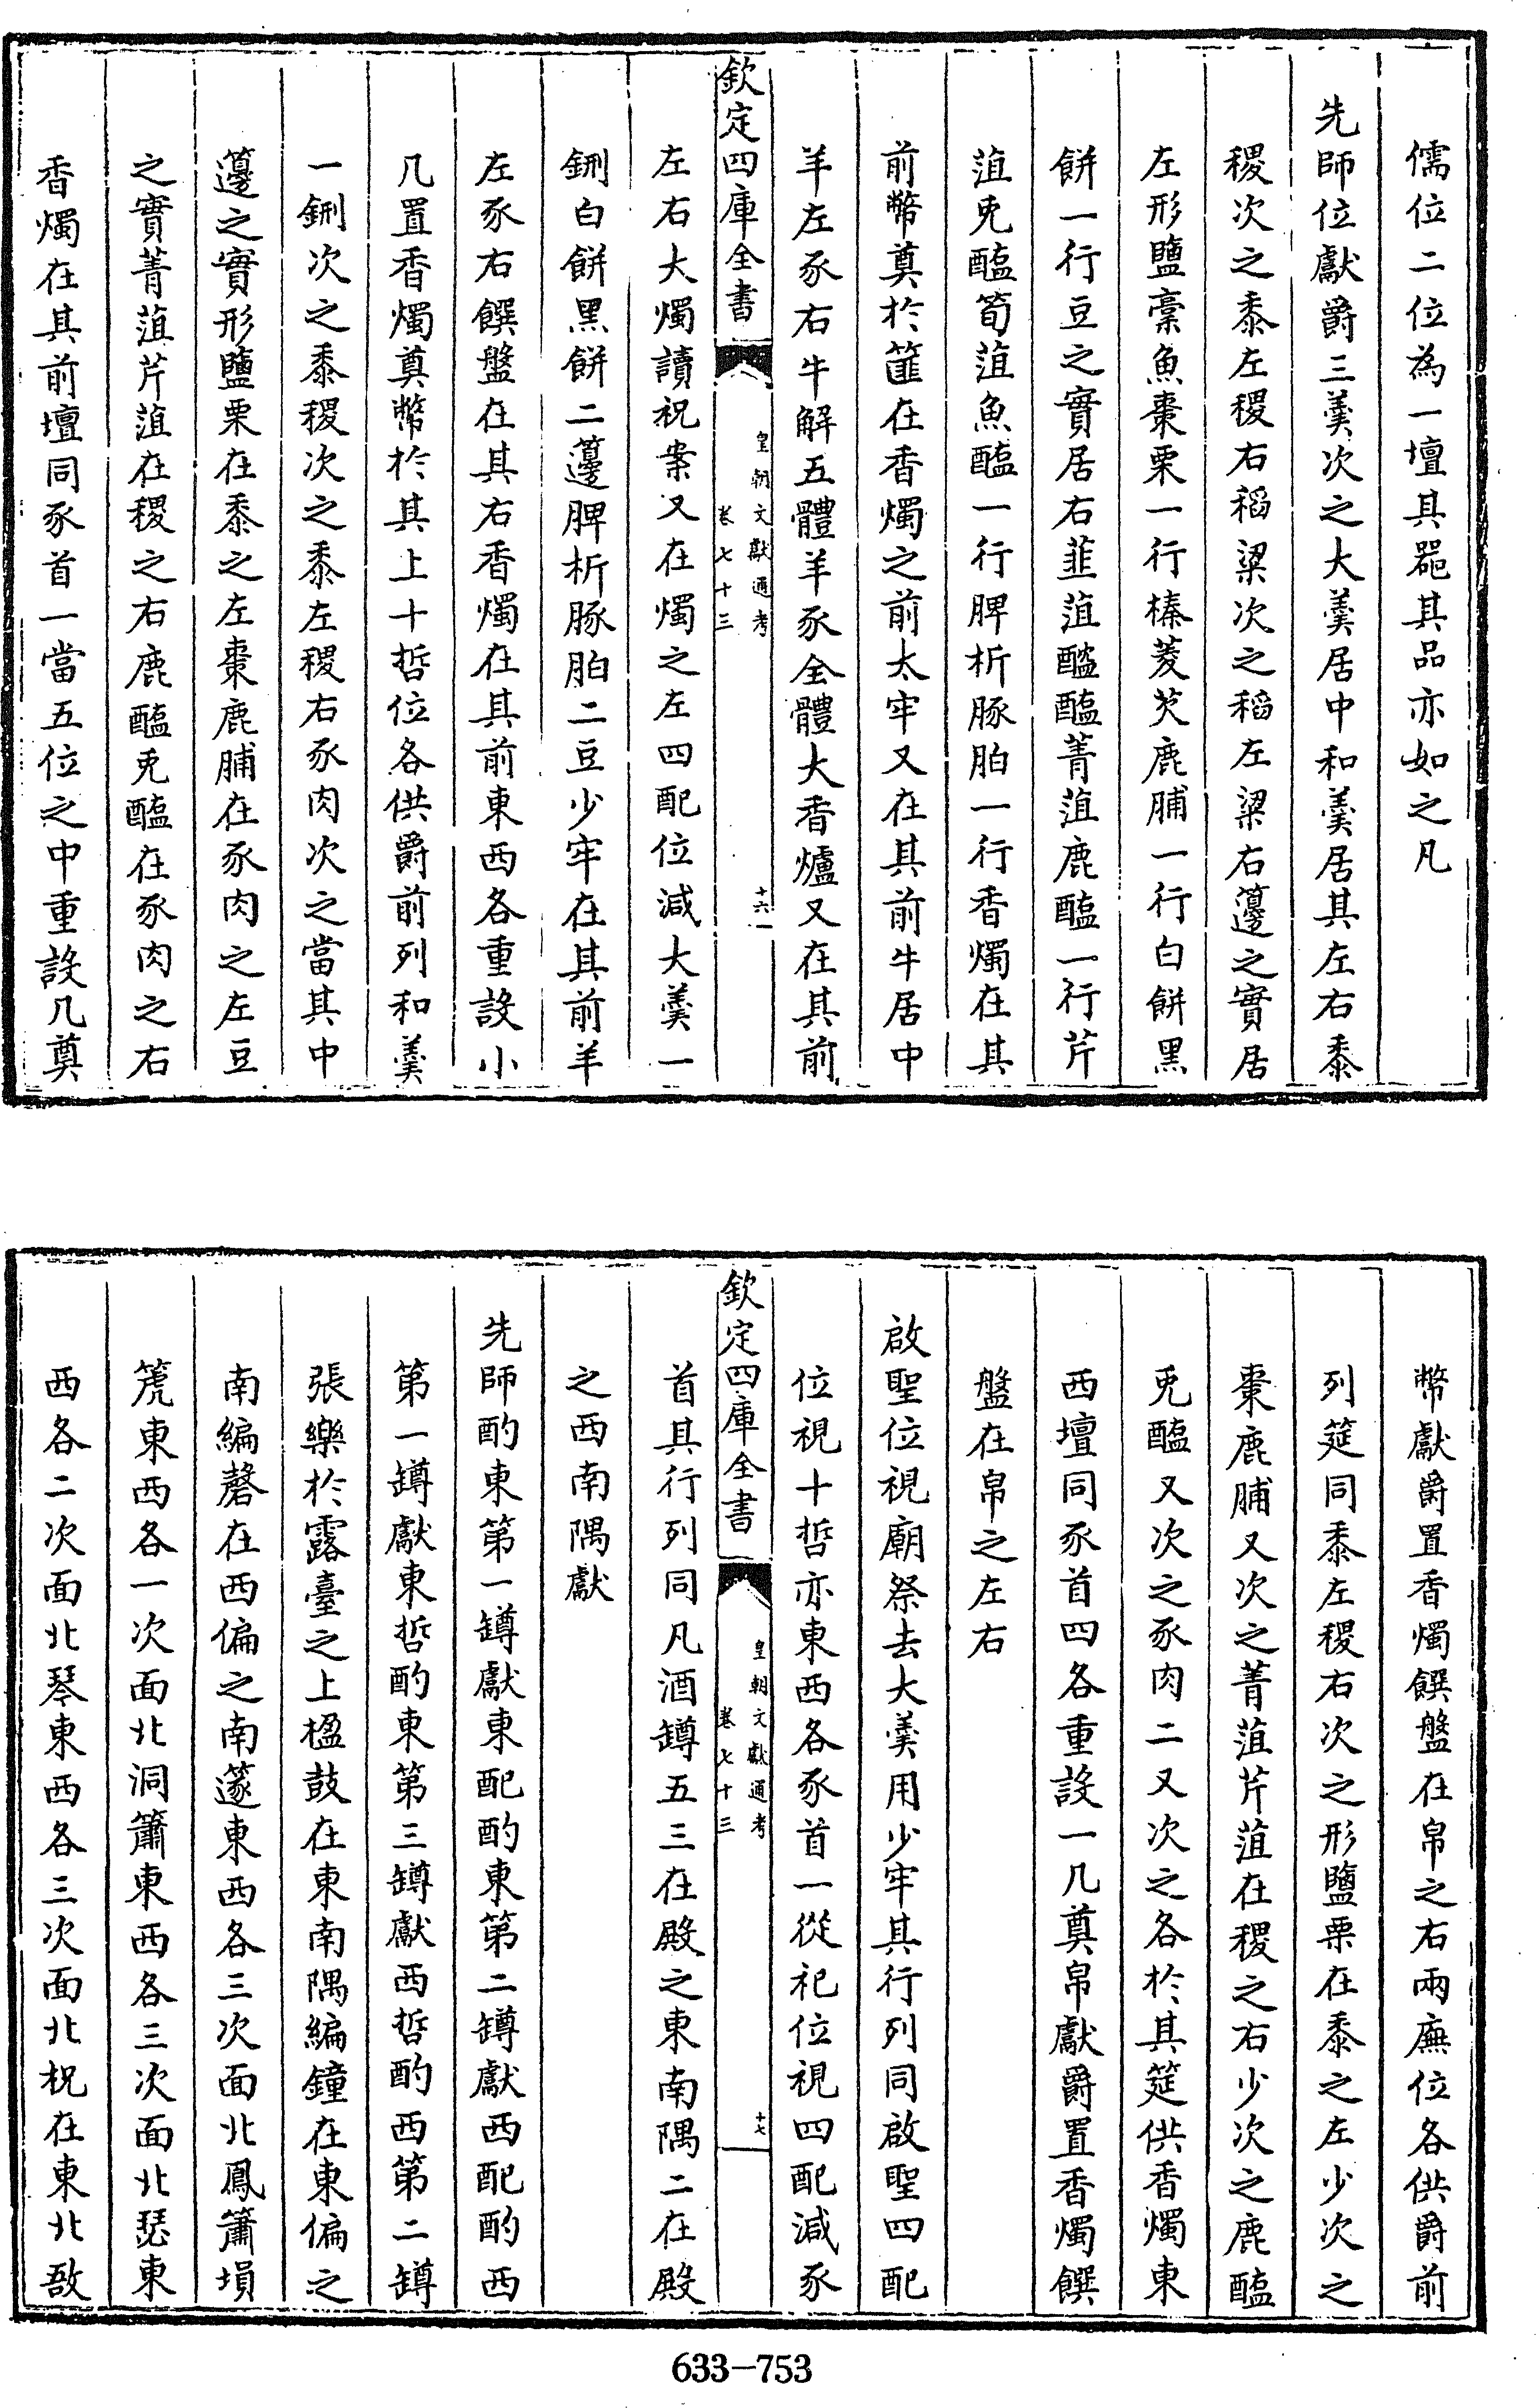 儒位二位為一壇其器其品亦如之凡
先師位獻爵三羹次之大羹居中和羹居其左右黍
稷次之黍左稷右稻粱次之稻左粱右籩之實居
左形鹽槀魚棗栗一行榛菱芡鹿脯一行白餅黑
餅一行豆之實居右韮菹醓醢菁菹鹿醢一行芹
菹兎醢筍菹魚醢一行脾析豚胉一行香燭在其
前幣奠於篚在香燭之前太牢又在其前牛居中
羊左豕右牛解五體羊豕全體大香爐又在其前
欽定四庫全書
皇朝文獻通考
卷七十三
十六
左右大燭讀祝案又在燭之左四配位減大羹一
鉶白餅黑餅二籩脾析豚胉二豆少牢在其前羊
左豕右饌盤在其右香燭在其前東西各重設小
几置香燭奠幣於其上十哲位各供爵前列和羹
一鉶次之黍稷次之黍左稷右豕肉次之當其中
籩之實形鹽栗在黍之左棗鹿脯在豕肉之左豆
之實菁菹芹菹在稷之右鹿醢兎醢在豕肉之右
香燭在其前壇同豕首一當五位之中重設几奠
幣獻爵置香燭饌盤在帛之右兩廡位各供爵前
列筵同黍左稷右次之形鹽栗在黍之左少次之
棗鹿脯又次之菁菹芹菹在稷之右少次之鹿醢
兎醢又次之豕肉二又次之各於其筵供香燭東
西壇同豕首四各重設一几奠帛獻爵置香燭饌
盤在帛之左右
啟聖位視廟祭去大羹用少牢其行列同啟聖四配
位視十哲亦東西各豕首一從祀位視四配減豕
欽定四庫全書
皇朝文獻通考
卷七十三
十七
首其行列同凡酒罇五三在殿之東南隅二在殿
之西南隅獻
先師酌東第一罇獻東配酌東第二罇獻西配酌西
第一罇獻東哲酌東第三罇獻西哲酌西第二罇
張樂於露臺之上楹鼓在東南隅編鐘在東偏之
南編磬在西偏之南篴東西各三次面北鳳簫塤
篪東西各一次面北洞簫東西各三次面北瑟東
西各二次面北琴東西各三次面北柷在東北敔
633-753